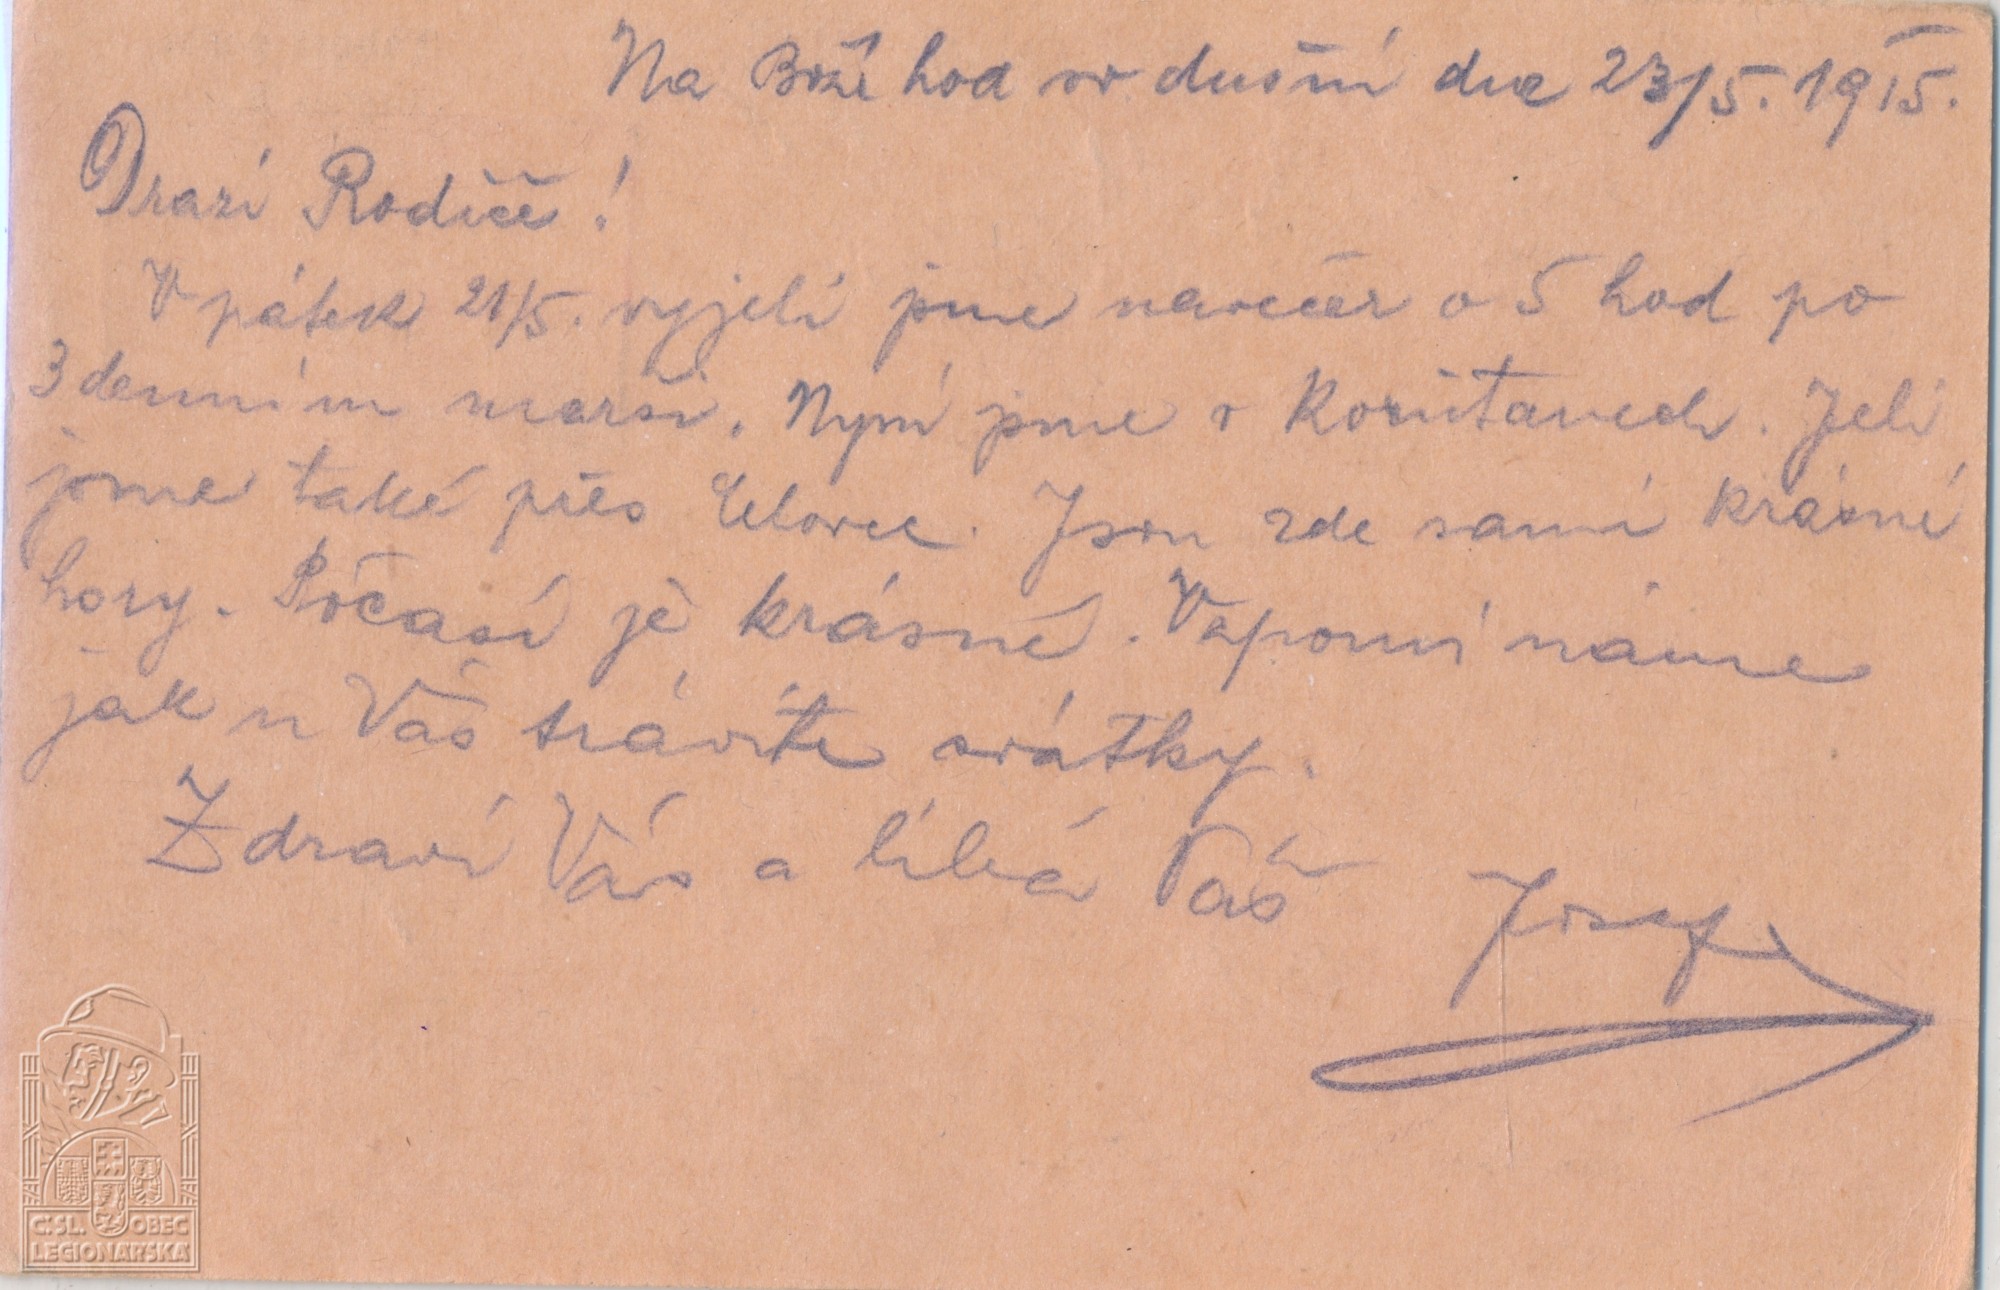 Na Boží hod sv dušní dne 23/5. 1915.
Drazí Rodiče!
V pátek 21/5. vyjeli jsme navečer o 5 hod po
3 denním marši. Nyní jsme v Korutanech. Jeli
jsme také přes Celovec. Jsou zde samé krásné
hory. Počasí je krásné. Vzpomínáme
jak u Vás trávíte svátky.
Zdraví Vás a líbá Váš Josef
Č.SL. OBEC
LEGIONÁŘSKÁ